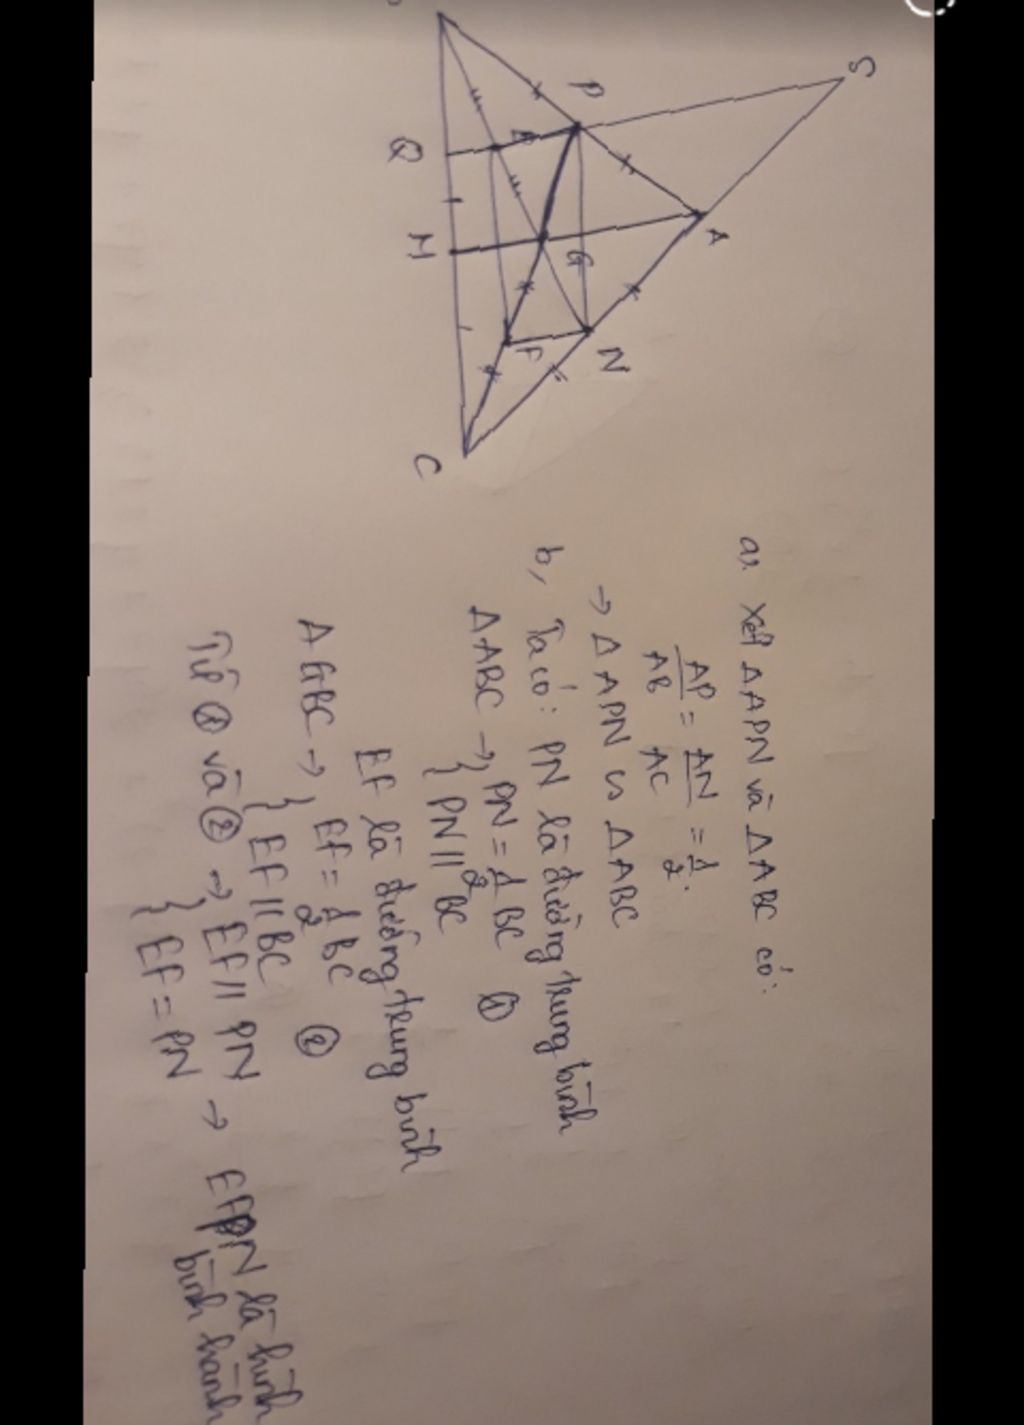 S
P
A
E
Q
G
M
N
F
C
a, Xét ΔAPN và ΔABC có:
AP/AB = AN/AC = 1/2.
→ ΔAPN ∽ ΔABC
b, Ta có: PN là đường trung bình
ΔABC → { PN = 1/2 BC ①
PN // BC
EF là đường trung bình
ΔGBC → { EF = 1/2 BC ②
EF // BC
Từ ① và ② → { EF // PN → EFPN là hình
EF = PN bình hành